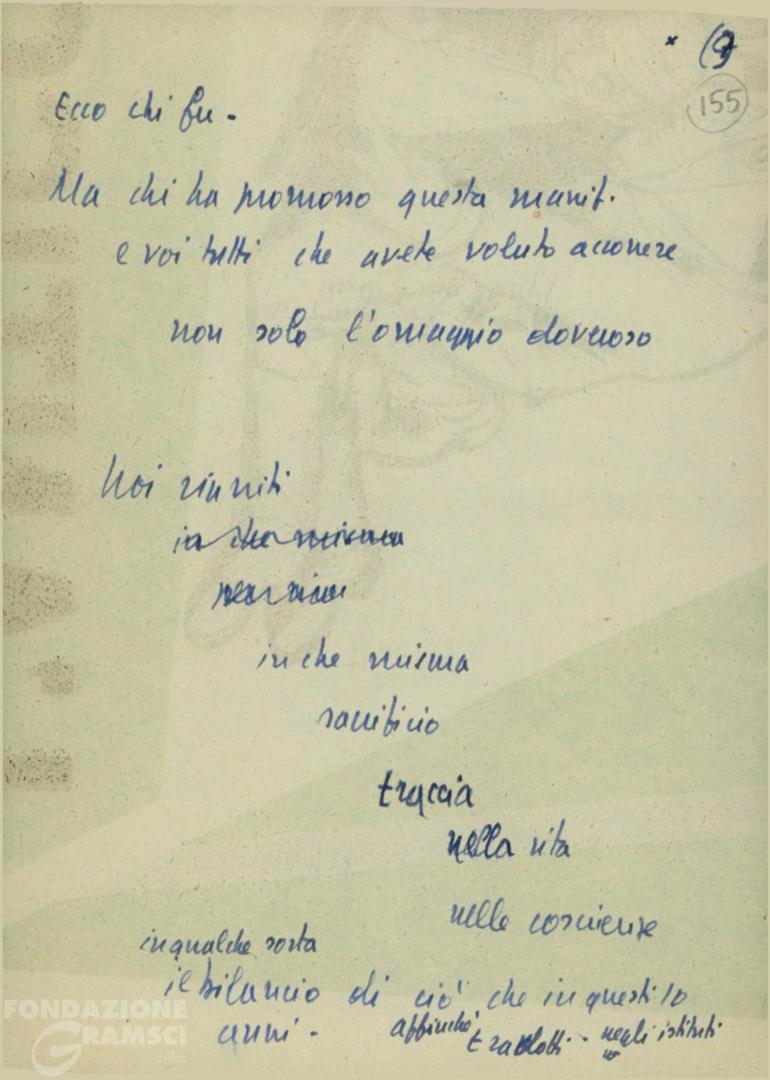 * (9
155
Ecco chi fu -
Ma chi ha promosso questa manif.
e voi tutti che avete voluto
non solo l'omaggio doveroso
Noi riuniti
in che misura
in che misura
sacrificio
traccia
nella vita
nelle coscienze
in qualche sorta
il bilancio di ciò che in questi 10
anni - affinché tradotti - negli istituti
FONDAZIONE
GRAMSCI
onlus